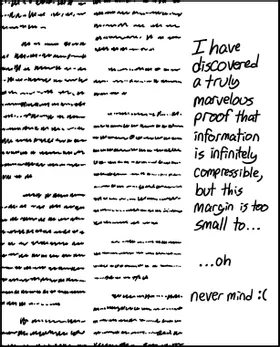 I have
discovered
a truly
marvelous
proof that
information
is infinitely
compressible,
but this
margin is too
small to...
...oh
never mind :(